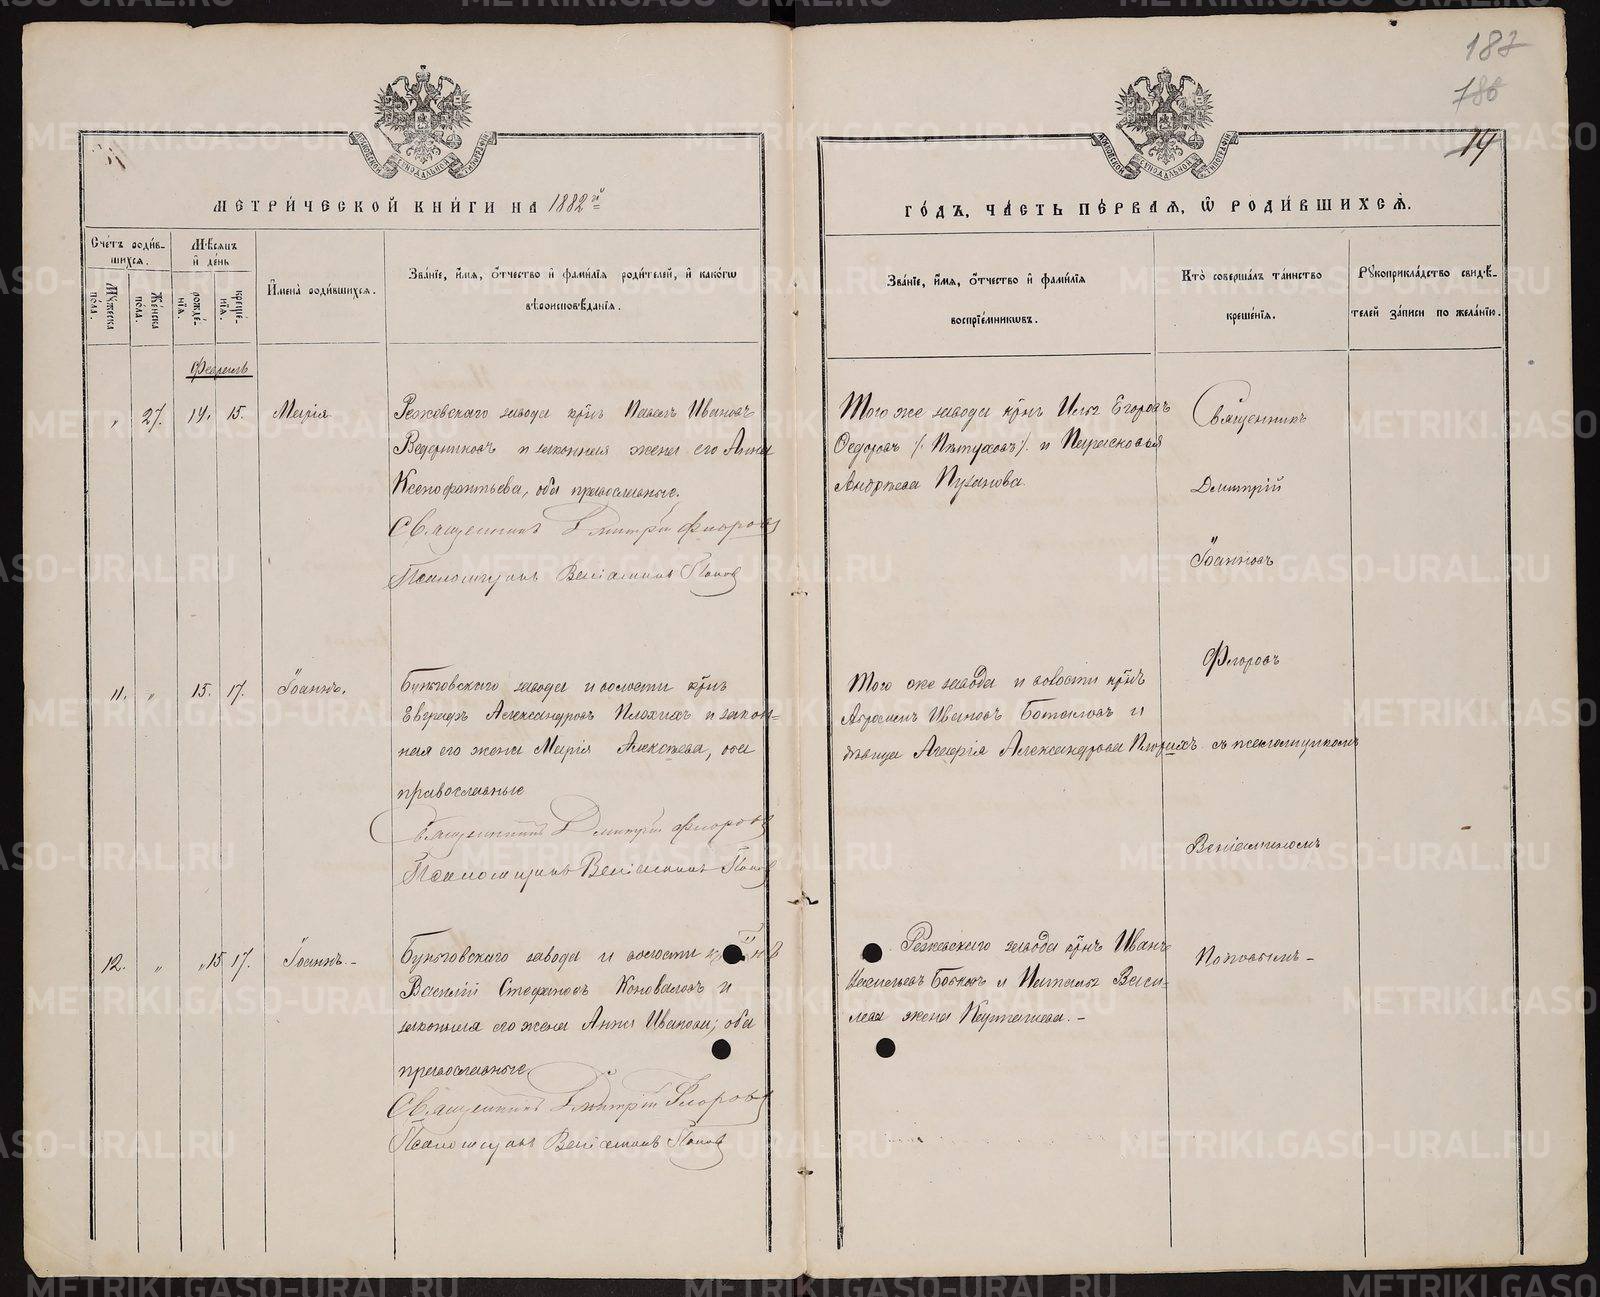 187
186
14
МЕТРИ́ЧЕСКОЙ КНИ́ГИ НА 1882 й
ГО́ДЪ, ЧА́СТЬ ПЕ́РВАЯ, Ѿ РОДИ́ВШИХСѦ.
Сче́тъ роди́в-
шихся.
Мꙋ́жеска по́ла.
Же́нска по́ла.
Мѣ́сяцъ и҆ де́нь
рожде́-нїя.
креще́-нїя.
И҆мена̀ роди́вшихся.
Зва́нїе, и҆́мя, ѻ҆́тчество и҆ фами́лїя роди́телей, и҆ како́гѡ
вѣроисповѣ́данїя.
Зва́нїе, и҆́мя, ѻ҆́тчество и҆ фами́лїя
воспрїе́мникѡвъ.
Кто̀ соверша́лъ та́инство
креще́нїя.
Рꙋкоприкла́дство свидѣ́-
телей за́писи по жела́нїю.
Февраль
„ 27. 14. 15. Марія
Режевскаго завода кр̃нъ Павелъ Ивановъ
Ведерниковъ и законная жена его Анна
Ксенофонтьева, оба православные.
Священникъ Дмитрій Флоровъ
Псаломщикъ Веніаминъ Попов
Того же завода кр̃нъ Илья Егоровъ
Федоровъ /: Пѣтуховъ :/ и Парасковья
Андреева Пузанова.
Священникъ
Дмитрій
Іоанновъ
Флоровъ
11. „ 15. 17. Іоаннъ.
Бунтовскаго завода и волости кр̃нъ
Евграфъ Александровъ Плохихъ и закон-
ная его жена Марія Алексѣева, оба
православные
Священникъ Дмитрій Флоровъ
Псаломщикъ Веніаминъ Попов
Того же завода и волости кр̃нъ
Иванов и
дѣвица Александрова Плохихъ
съ псаломщикомъ
Веніаминомъ
12. „ „ 15 17. Іоаннъ. –
Бунтовскаго завода и волости
Василій Стефановъ Коноваловъ и
законная его жена Анна Иванова; оба
православные
Священникъ Дмитрій Флоровъ
Псаломщикъ Веніаминъ Попов
Режевскаго завода кр̃нъ Иванъ
Васильевъ и Наталья Васи-
льева жена –
Поповымъ –
METRIKI.GASO-URAL.RU